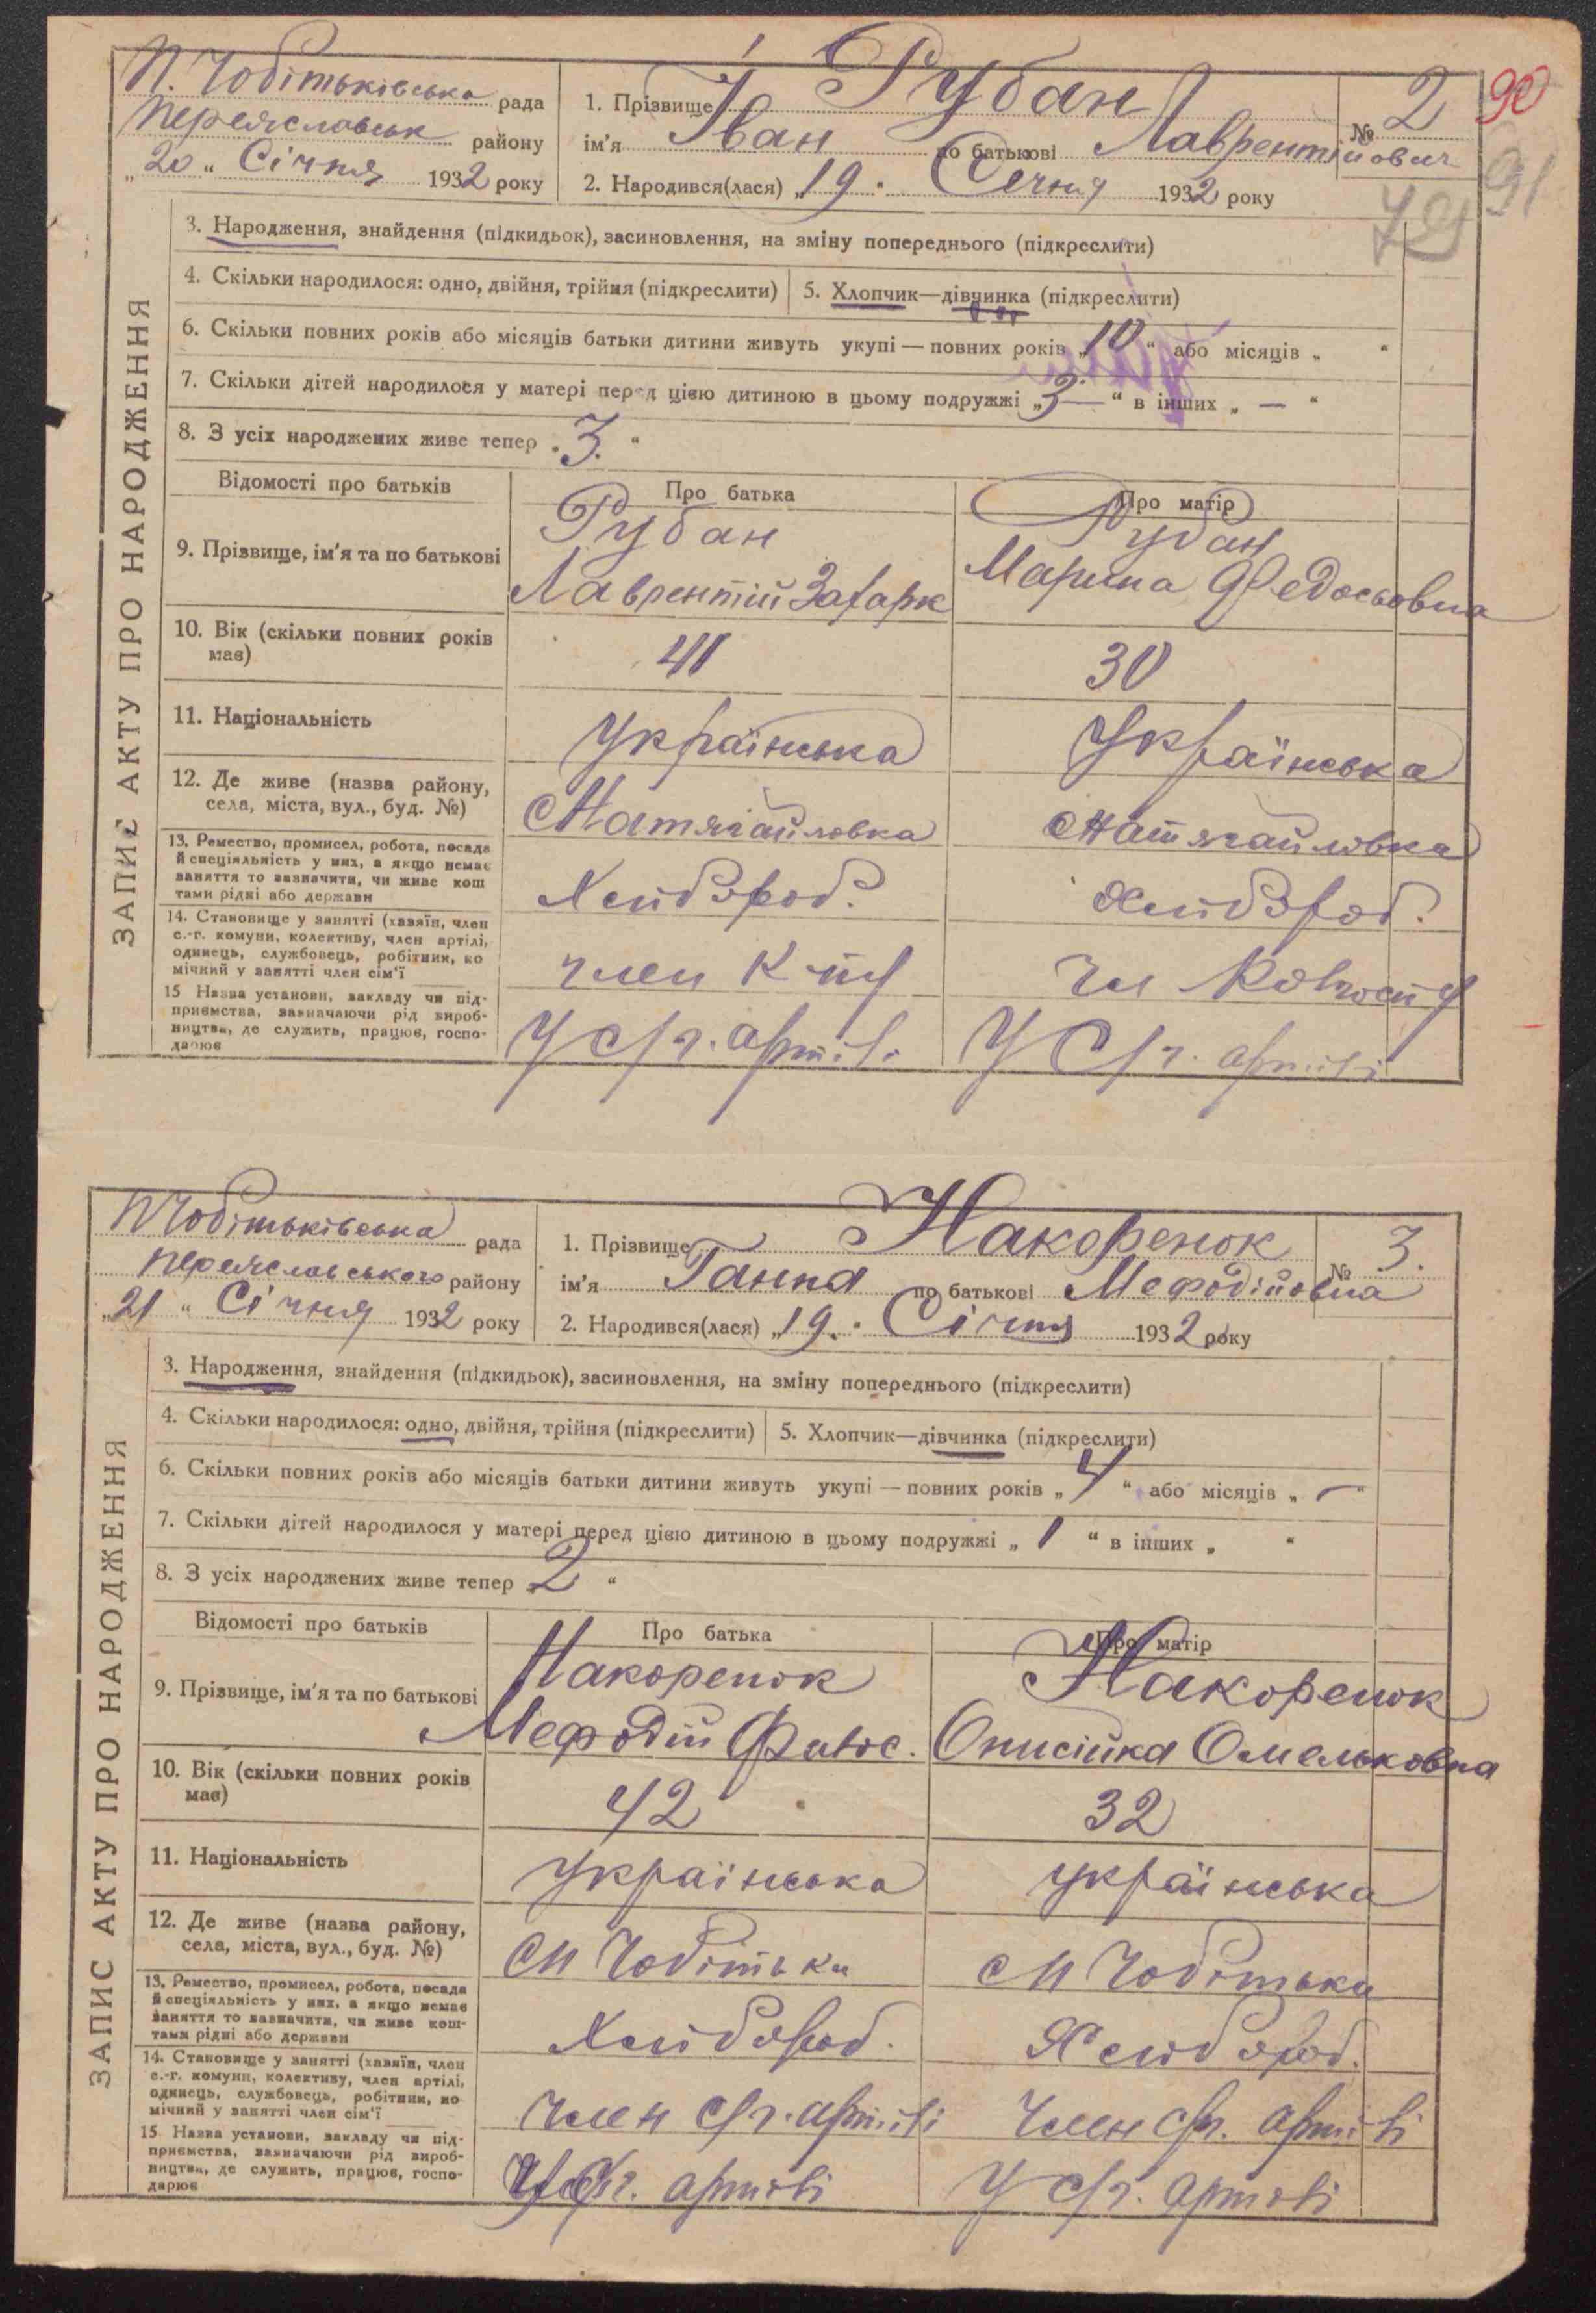 П. Чобітьківська рада
Переяславськ району
„20“ Січня 1932 року
1. Прізвище Рубан
ім'я Іван по батькові Лаврентійович
№ 2
90
91
2. Народився(лася) „19“ Сечня 1932 року
ЗАПИС АКТУ ПРО НАРОДЖЕННЯ
3. Народження, знайдення (підкидьок), засиновлення, на зміну попереднього (підкреслити)
4. Скільки народилося: одно, двійня, трійня (підкреслити) 5. Хлопчик—дівчинка (підкреслити)
6. Скільки повних років або місяців батьки дитини живуть укупі — повних років „10“ або місяців „ “
7. Скільки дітей народилося у матері перед цією дитиною в цьому подружжі „3—“ в інших „—“
8. З усіх народжених живе тепер „3.“
Відомості про батьків Про батька Про матір
9. Прізвище, ім'я та по батькові
Рубан
Лаврентій Захарк
Рубан
Марина Федосьовна
10. Вік (скільки повних років
має)
41 30
11. Національність Українська Українська
12. Де живе (назва району,
села, міста, вул., буд. №)
Натягайловка Натягайловка
13. Ремество, промисел, робота, посада
й спеціяльність у них, а якщо немає
заняття то зазначити, чи живе кош
тами рідні або держави
Хлибороб. Хлибороб.
14. Становище у занятті (хазяїн, член
с.-г. комуни, колективу, член артілі,
одинець, службовець, робітник, по
мічний у занятті член сім'ї
член
15 Назва установи, закладу чи під-
приємства, зазначаючи рід вироб-
ництва, де служить, працює, госпо-
дарює
У с/г. артілі У с/г. артілі
ПЧобітьківська рада
Переяславського району
„21“ Січня 1932 року
1. Прізвище Накоренок
ім'я Ганна по батькові Мефодіївна
№ 3.
2. Народився(лася) „19.“ Січня 1932 року
ЗАПИС АКТУ ПРО НАРОДЖЕННЯ
3. Народження, знайдення (підкидьок), засиновлення, на зміну попереднього (підкреслити)
4. Скільки народилося: одно, двійня, трійня (підкреслити) 5. Хлопчик—дівчинка (підкреслити)
6. Скільки повних років або місяців батьки дитини живуть укупі — повних років „4“ або місяців „—“
7. Скільки дітей народилося у матері перед цією дитиною в цьому подружжі „1“ в інших „ “
8. З усіх народжених живе тепер „2“
Відомості про батьків Про батька Про матір
9. Прізвище, ім'я та по батькові
Накоренок
Мефодій
Накоренок
Онисійка Омельковна
10. Вік (скільки повних років
має)
42 32
11. Національність українська українська
12. Де живе (назва району,
села, міста, вул., буд. №)
Чобітьки Чобітьки
13. Ремество, промисел, робота, посада
й спеціяльність у них, а якщо немає
заняття то зазначити, чи живе кош-
тами рідні або держави
Хлибороб. Хлибороб.
14. Становище у занятті (хазяїн, член
с.-г. комуни, колективу, член артілі,
одинець, службовець, робітник, по
мічний у занятті член сім'ї
член с/г. артілі Член с/г. артілі
15 Назва установи, закладу чи під-
приємства, зазначаючи рід вироб-
ництва, де служить, працює, госпо-
дарює
У с/г. артілі У с/г. артілі